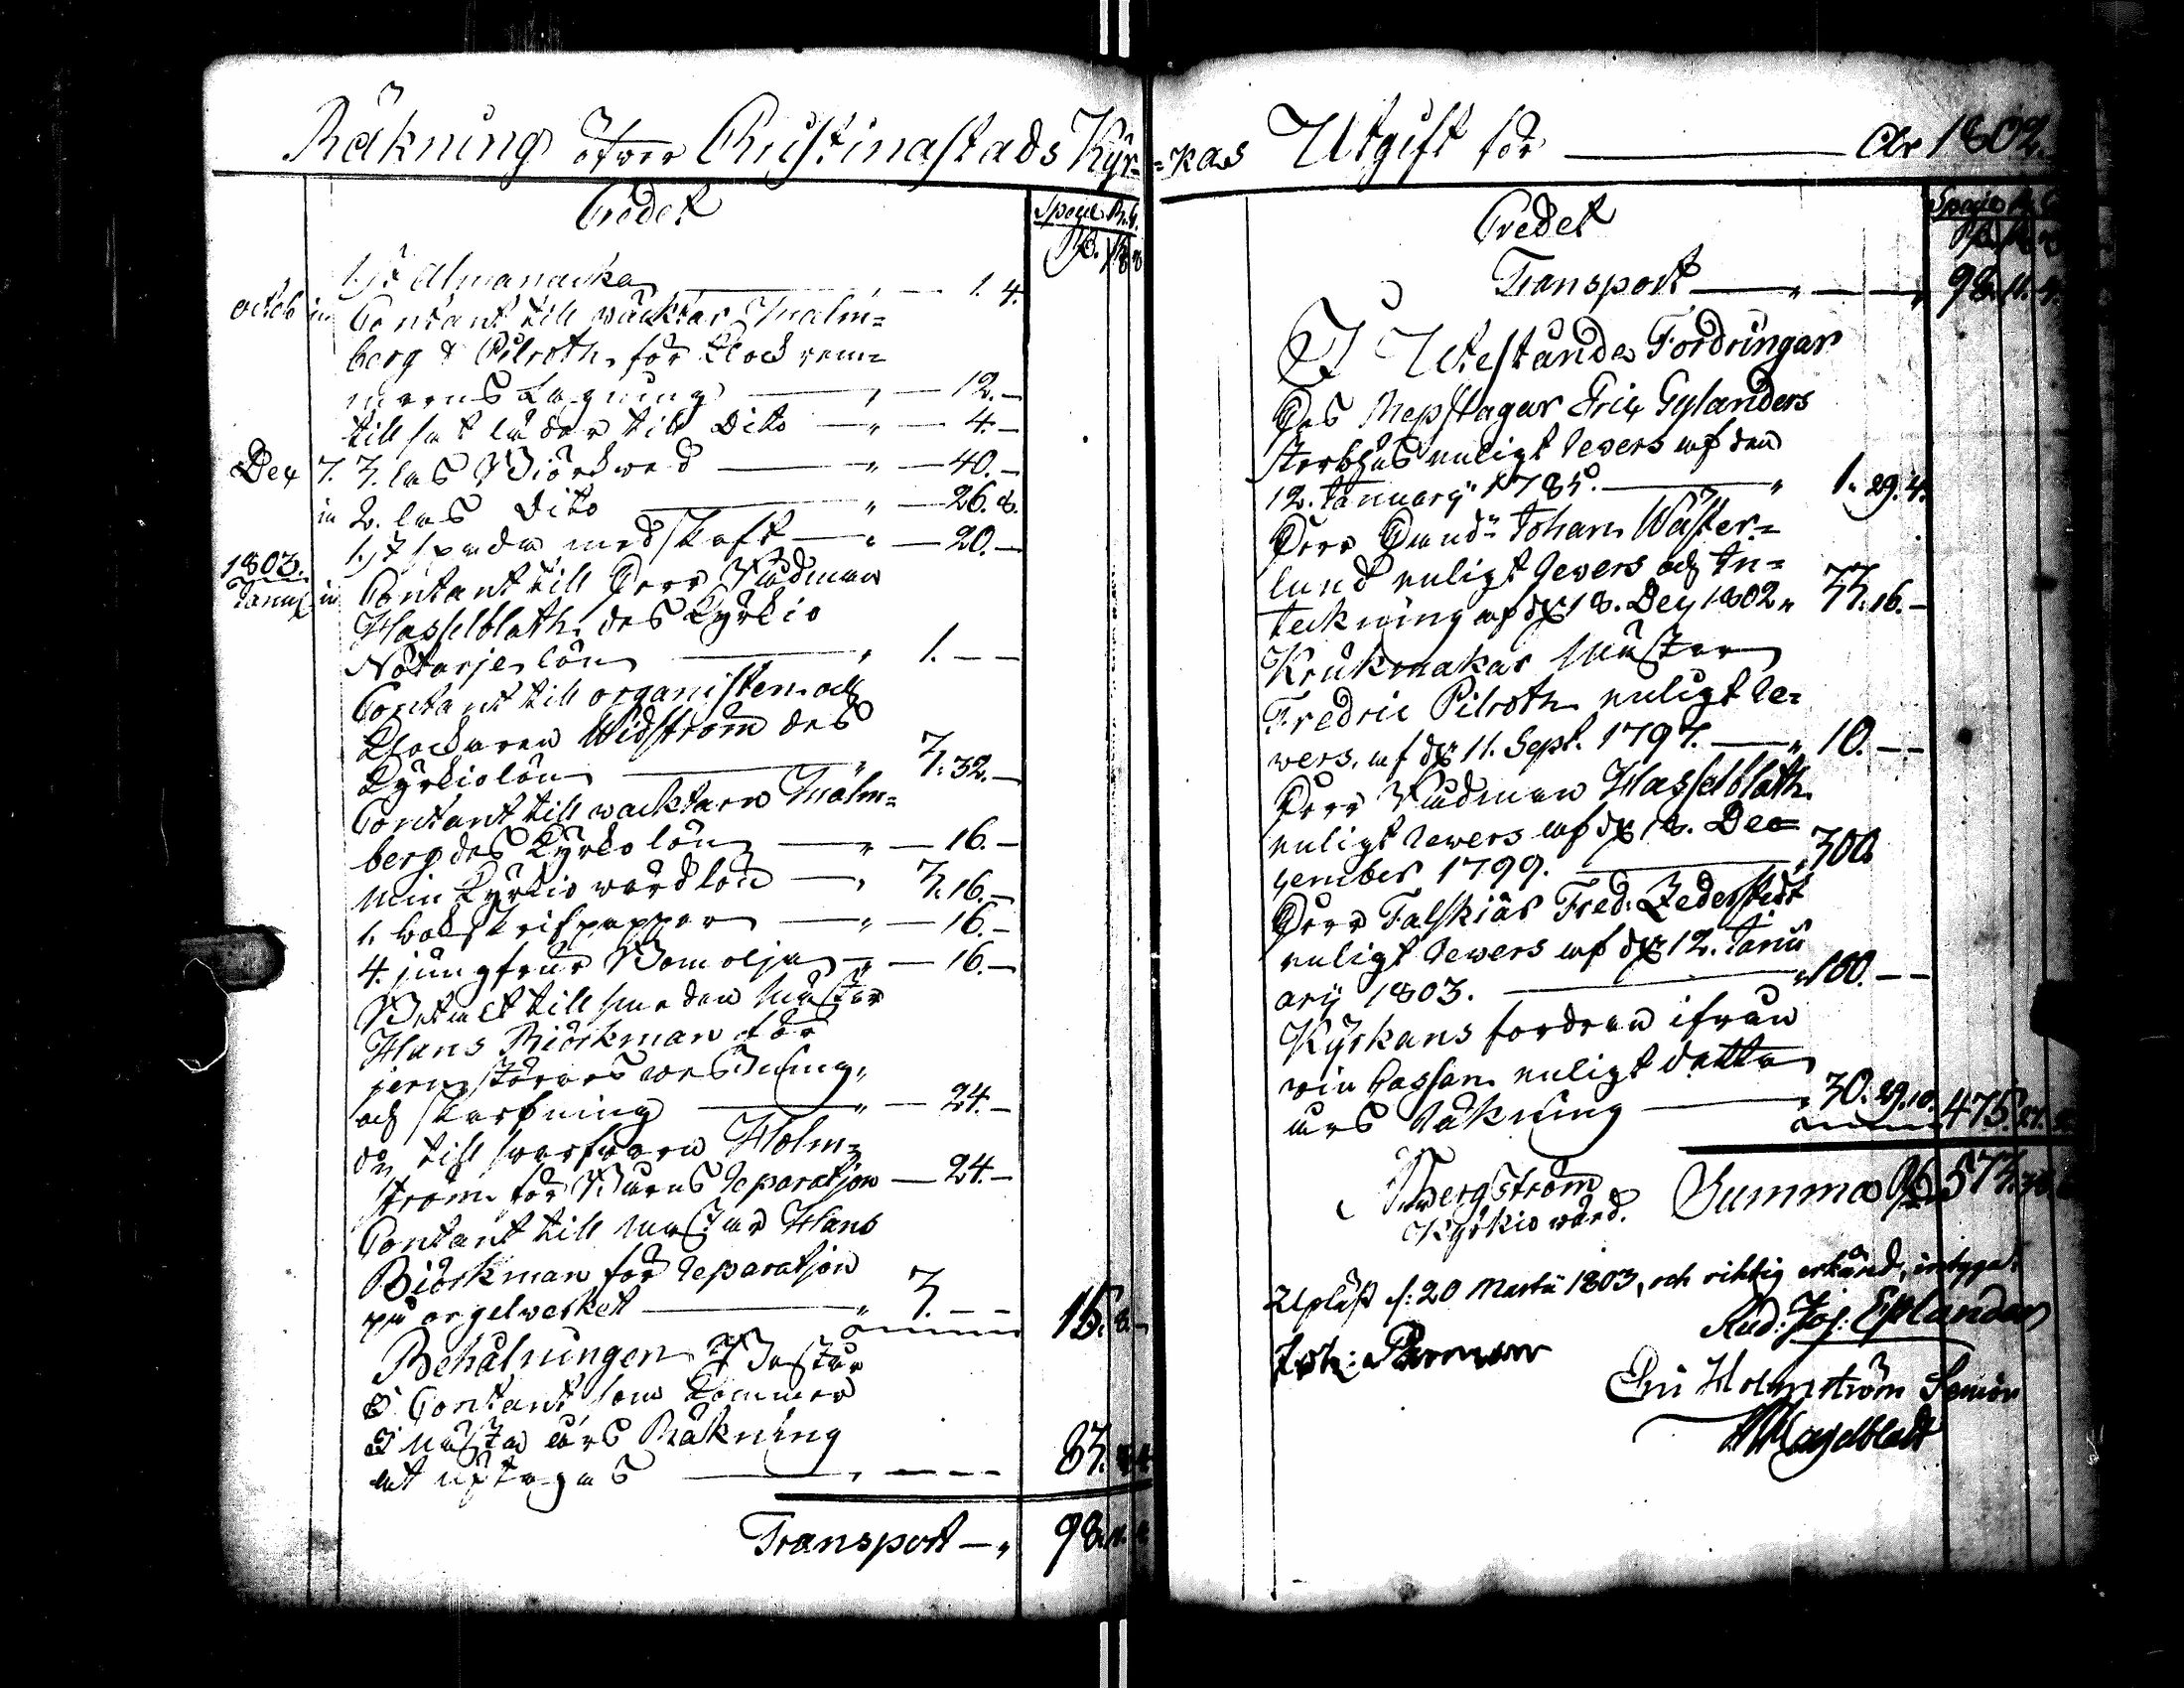 Räkning öfver Christinastads Kyr=
Credet
Specie R.G.
1. st Almanacka — 1. 4.
octob in Contant till wäcktar Malm=
berg & Pilroth för Klock rem=
marnes Lagning — 12. —
till satt läder till Dito — 4. —
Dec 7. 3. las Biörkwed — 40. —
in 2. las Dito — 26. 8.
1. st spada med skaft — 20. —
1803.
Januy in Contant till Herr Rådman
Hasselblath des Kyrkio
Notarje lön — 1. — —
Contant till organisten och
Klockaren Widström des
Kyrkiolön — 7. 32. —
Contant till wacktarn Malm=
berg des Kyrko lön — 16. —
Min Kyrkio wärd lön — 3. 16. —
1. bok skrifpapper — 16. —
4. jungfrur Bomolja — 16. —
Betalt till smeden Mäster
Hans Biörkman för
jern störars wesning
och skarfning — 24. —
do till swarfwarn Holm=
ström för Bärens Reparatjon — 24. —
Contant till Mäster Hans
Biörkman för Reparatjon
på orgelwerket — 3. — —
15. 8. —
Behålningen
Contant som kommer
i Nästa års Räkning
at uptagas — 83.
Transport — 98. 11.
=kas Utgift för — År 1802.
Credet
Transport — 98. 11. 4.
I Utestånde Fordringar
Des Repslagar Eric Gylanders
sterbhus enligt Revers af den
12. January 1785. — 1. 29. 4.
Herr Handl Johan Wäster=
lund enligt Revers och In=
teckning af d 18. Dec 1802 33. 16. —
Krukmakar Mästaren
Fredric Pilroth enligt Re=
vers, af d 11. Sept. 1797. — 10. — —
Herr Rådman Hasselblath
enligt Revers af d 18. Dec=
cember 1799. — 300.
Herr Falskiär Fred. Zederstedt
enligt Revers af d 12. Janu
ary 1803. — 100. — —
Kyrkans fordran ifrån
win Cassan enligt detta
års Räkning — 30. 29. 10. 475. 27.
Bergström
Kyrkio wärd. Summa 573.
Upläst d: 20 Martii 1803, och riktig erkänd, intyga:
And: Jos: Eplander
Joh:
Eric Holmström Senior